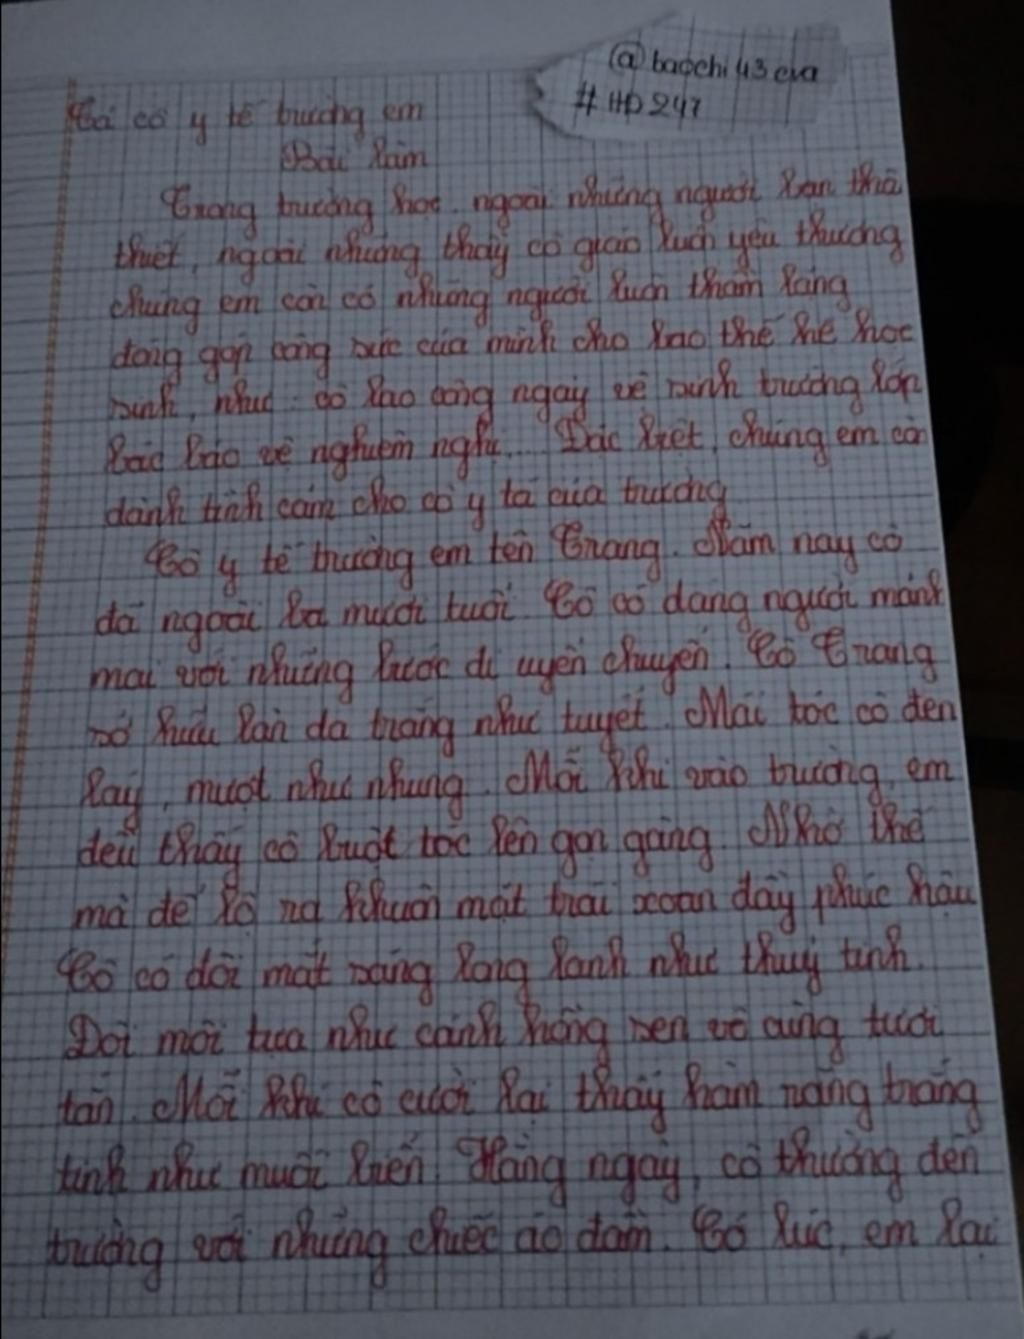 @baochi43cva
#HD247
Tả cô y tế trường em
Bài làm
Trong trường học, ngoài những người bạn thâ
thiết, ngoài những thầy cô giáo luôn yêu thương
chúng em còn có những người luôn thầm lặng
đóng góp công sức của mình cho bao thế hệ học
sinh, như: cô lao công ngày vệ sinh trường lớp
bác bảo vệ nghiêm nghị... Đặc biệt, chúng em còn
dành tình cảm cho cô y tá của trường
Cô y tế trường em tên Trang. Năm nay cô
đã ngoài ba mươi tuổi. Cô có dáng người mảnh
mai với những bước đi uyển chuyển. Cô Trang
sở hữu làn da trắng như tuyết. Mái tóc cô đen
láy, mượt như nhung. Mỗi khi vào trường, em
đều thấy cô buột tóc lên gọn gàng. Nhờ thế
mà để lộ ra khuôn mặt trái xoan đầy phúc hậu
Cô có đôi mắt sáng long lanh như thuỷ tinh.
Đôi môi tựa như cánh hồng sen vô cùng tươi
tắn. Mỗi khi cô cười lại thấy hàm răng trắng
tinh như muối biển. Hằng ngày, cô thường đến
trường với những chiếc áo đầm. Có lúc, em lại